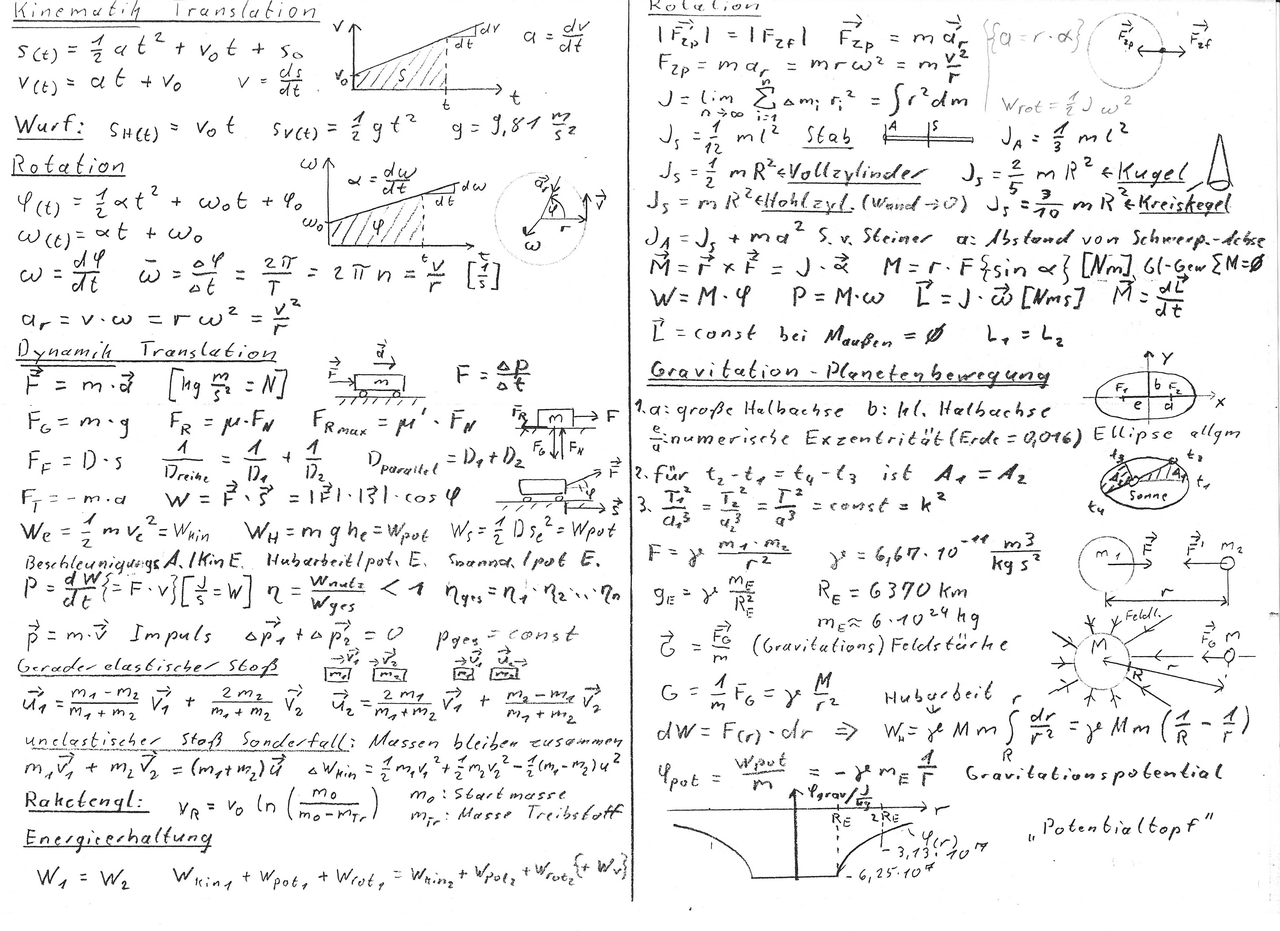 Kinematik Translation
s(t) = 1/2 a t² + v₀ t + s₀
v(t) = a t + v₀   v = ds/dt
v   v₀   s   dv   dt   t   t
a = dv/dt
Wurf: s_H(t) = v₀ t   s_V(t) = 1/2 g t²   g = 9,81 m/s²
Rotation
φ(t) = 1/2 α t² + ω₀ t + φ₀
ω(t) = α t + ω₀
ω   ω₀   α = dω/dt   φ   dω   dt   t   t
a⃗r   φ   v⃗   r   ω
ω = dφ/dt   ω̄ = Δφ/Δt = 2π/T = 2πn = v/r   [1/s]
a_r = v · ω = r ω² = v²/r
Dynamik Translation
F⃗ = m · a⃗   [kg m/s² = N]   F⃗   a⃗   m   F = Δp/Δt
F_G = m · g   F_R = μ · F_N   F_Rmax = μ' · F_N   F⃗_R   m   F   F_G   F_N
F_F = D · s   1/D_Reihe = 1/D₁ + 1/D₂   D_parallel = D₁ + D₂
F_T = - m · a   W = F⃗ · s⃗ = |F⃗| · |s⃗| · cos φ   F⃗   φ   s⃗
W_e = 1/2 m v_e² = W_kin   W_H = m g h_e = W_pot   W_s = 1/2 D s_e² = W_pot
Beschleunigungs A. / Kin E.   Hubarbeit / pot. E.   Spanna / pot E.
P = dW/dt {= F · v} [J/s = W]   η = W_nutz/W_ges < 1   η_ges = η₁ · η₂ ... · η_n
p⃗ = m · v⃗   Impuls   Δp⃗₁ + Δp⃗₂ = 0   p_ges = const
Gerader elastischer Stoß   v⃗₁   m₁   v⃗₂   m₂   u⃗₁   m₁   u⃗₂   m₂
u⃗₁ = (m₁ - m₂)/(m₁ + m₂) v⃗₁ + 2m₂/(m₁ + m₂) v⃗₂   u⃗₂ = 2m₁/(m₁ + m₂) v⃗₁ + (m₂ - m₁)/(m₁ + m₂) v⃗₂
unelastischer Stoß Sonderfall: Massen bleiben zusammen
m₁v⃗₁ + m₂v⃗₂ = (m₁+m₂)u⃗   ΔW_kin = 1/2 m₁v₁² + 1/2 m₂v₂² - 1/2 (m₁-m₂)u²
Raketengl.: v_R = v₀ ln (m₀/(m₀ - m_Tr))   m₀: Startmasse
m_Tr: Masse Treibstoff
Energieerhaltung
W₁ = W₂   W_kin1 + W_pot1 + W_rot1 = W_kin2 + W_pot2 + W_rot2 {+ W_v}
Rotation
|F⃗_Zp| = |F_Zf|   F⃗_Zp = m a⃗_r   {a = r · α}   F⃗_Zp   F⃗_Zf
F_Zp = m a_r = m r ω² = m v²/r
J = lim n→∞ Σ i=1 n Δm_i r_i² = ∫ r² dm   W_rot = 1/2 J ω²
J_S = 1/12 m l²   Stab   A   S   J_A = 1/3 m l²
J_S = 1/2 m R² ← Vollzylinder   J_S = 2/5 m R² ← Kugel
J_S = m R² ← Hohlzyl. (Wand → 0)   J_S = 3/10 m R² ← Kreiskegel
J_A = J_S + m a² S. v. Steiner   a: Abstand von Schwerp.-Achse
M⃗ = r⃗ × F⃗ = J · α⃗   M = r · F {sin α} [Nm]   Gl-Gew ΣM = 0
W = M · φ   P = M · ω   L⃗ = J · ω⃗ [Nms]   M⃗ = dL⃗/dt
L⃗ = const bei M_außen = 0   L₁ = L₂
Gravitation - Planetenbewegung
Y   F₁   b   F₂   e   a   x
1. a: große Halbachse   b: kl. Halbachse
e/a: numerische Exzentrität (Erde = 0,016)   Ellipse allgm
2. für t₂ - t₁ = t₄ - t₃ ist A₁ = A₂   t₃   t₂   A₂   A₁   t₁   Sonne   t₄
3. T₁²/a₁³ = T₂²/a₂³ = T²/a³ = const = k²
F = γ m₁ · m₂/r²   γ = 6,67 · 10⁻¹¹ m³/kg s²   m₁   F⃗   F⃗'   m₂   r
g_E = γ m_E/R_E²   R_E = 6370 km
m_E ≈ 6 · 10²⁴ kg
G⃗ = F⃗_G/m   (Gravitations) Feldstärke   Feldl.   M   R   r   F⃗_G   m
G = 1/m F_G = γ M/r²   Hubarbeit
dW = F(r) · dr ⇒ W_H = γ M m ∫ R r dr/r² = γ M m (1/R - 1/r)
φ_pot = W_pot/m = - γ m_E 1/r   Gravitationspotential
φ_grav / J/kg   r   R_E   2R_E   φ(r)
- 3,13 · 10⁷
- 6,25 · 10⁷
„Potentialtopf"